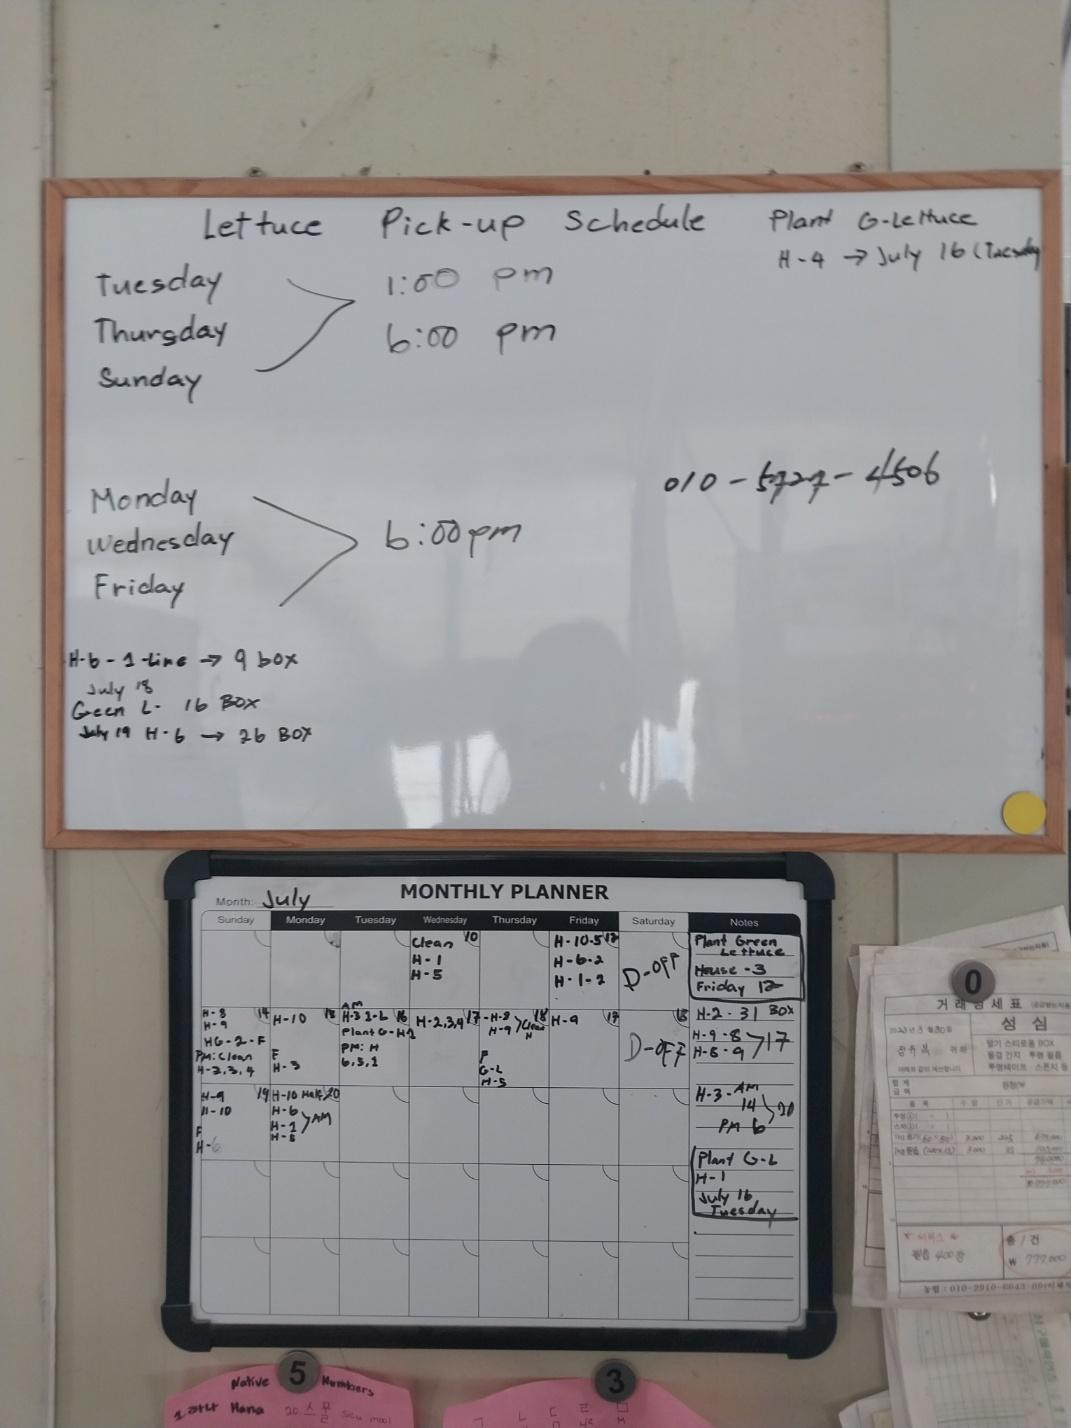 Lettuce Pick-up Schedule
Plant G-Lettuce
H-4 → July 16 (Tuesday
Tuesday
Thursday
Sunday
1:00 pm
6:00 pm
Monday
Wednesday
Friday
6:00 pm
010-5727-4506
H-6-1-Line → 9 box
July 18
Green L- 16 BOX
July 19 H-6 → 26 BOX
MONTHLY PLANNER
Month: July
Sunday Monday Tuesday Wednesday Thursday Friday Saturday Notes
10
Clean
H-1
H-5
12
H-10-5
H-6-2
H-1-2
D-OFF
Plant Green
Lettuce
House-3
Friday 12
14
H-8
H-9
HG-2-F
PM: Clean
H-2,3,4
15
H-10
F
H-3
AM
16
Plant G-H1
PM: H
6,5,1
17
H-2,3,4
18
H-8
H-9
Clean
F
G-L
H-5
H-9
D-OFF
H-2-31 BOX
H-9-8
H-8-9
17
H-3-AM
14
PM 6
20
H-9
H-10
F
H-10 Half
H-6
H-1
H-5
AM
Plant G-L
H-1
July 16
Tuesday
거래명세표
성심
딸기 스티로폼 BOX
₩ 777,000
5
3
0
Native Numbers
Hana
20 스물